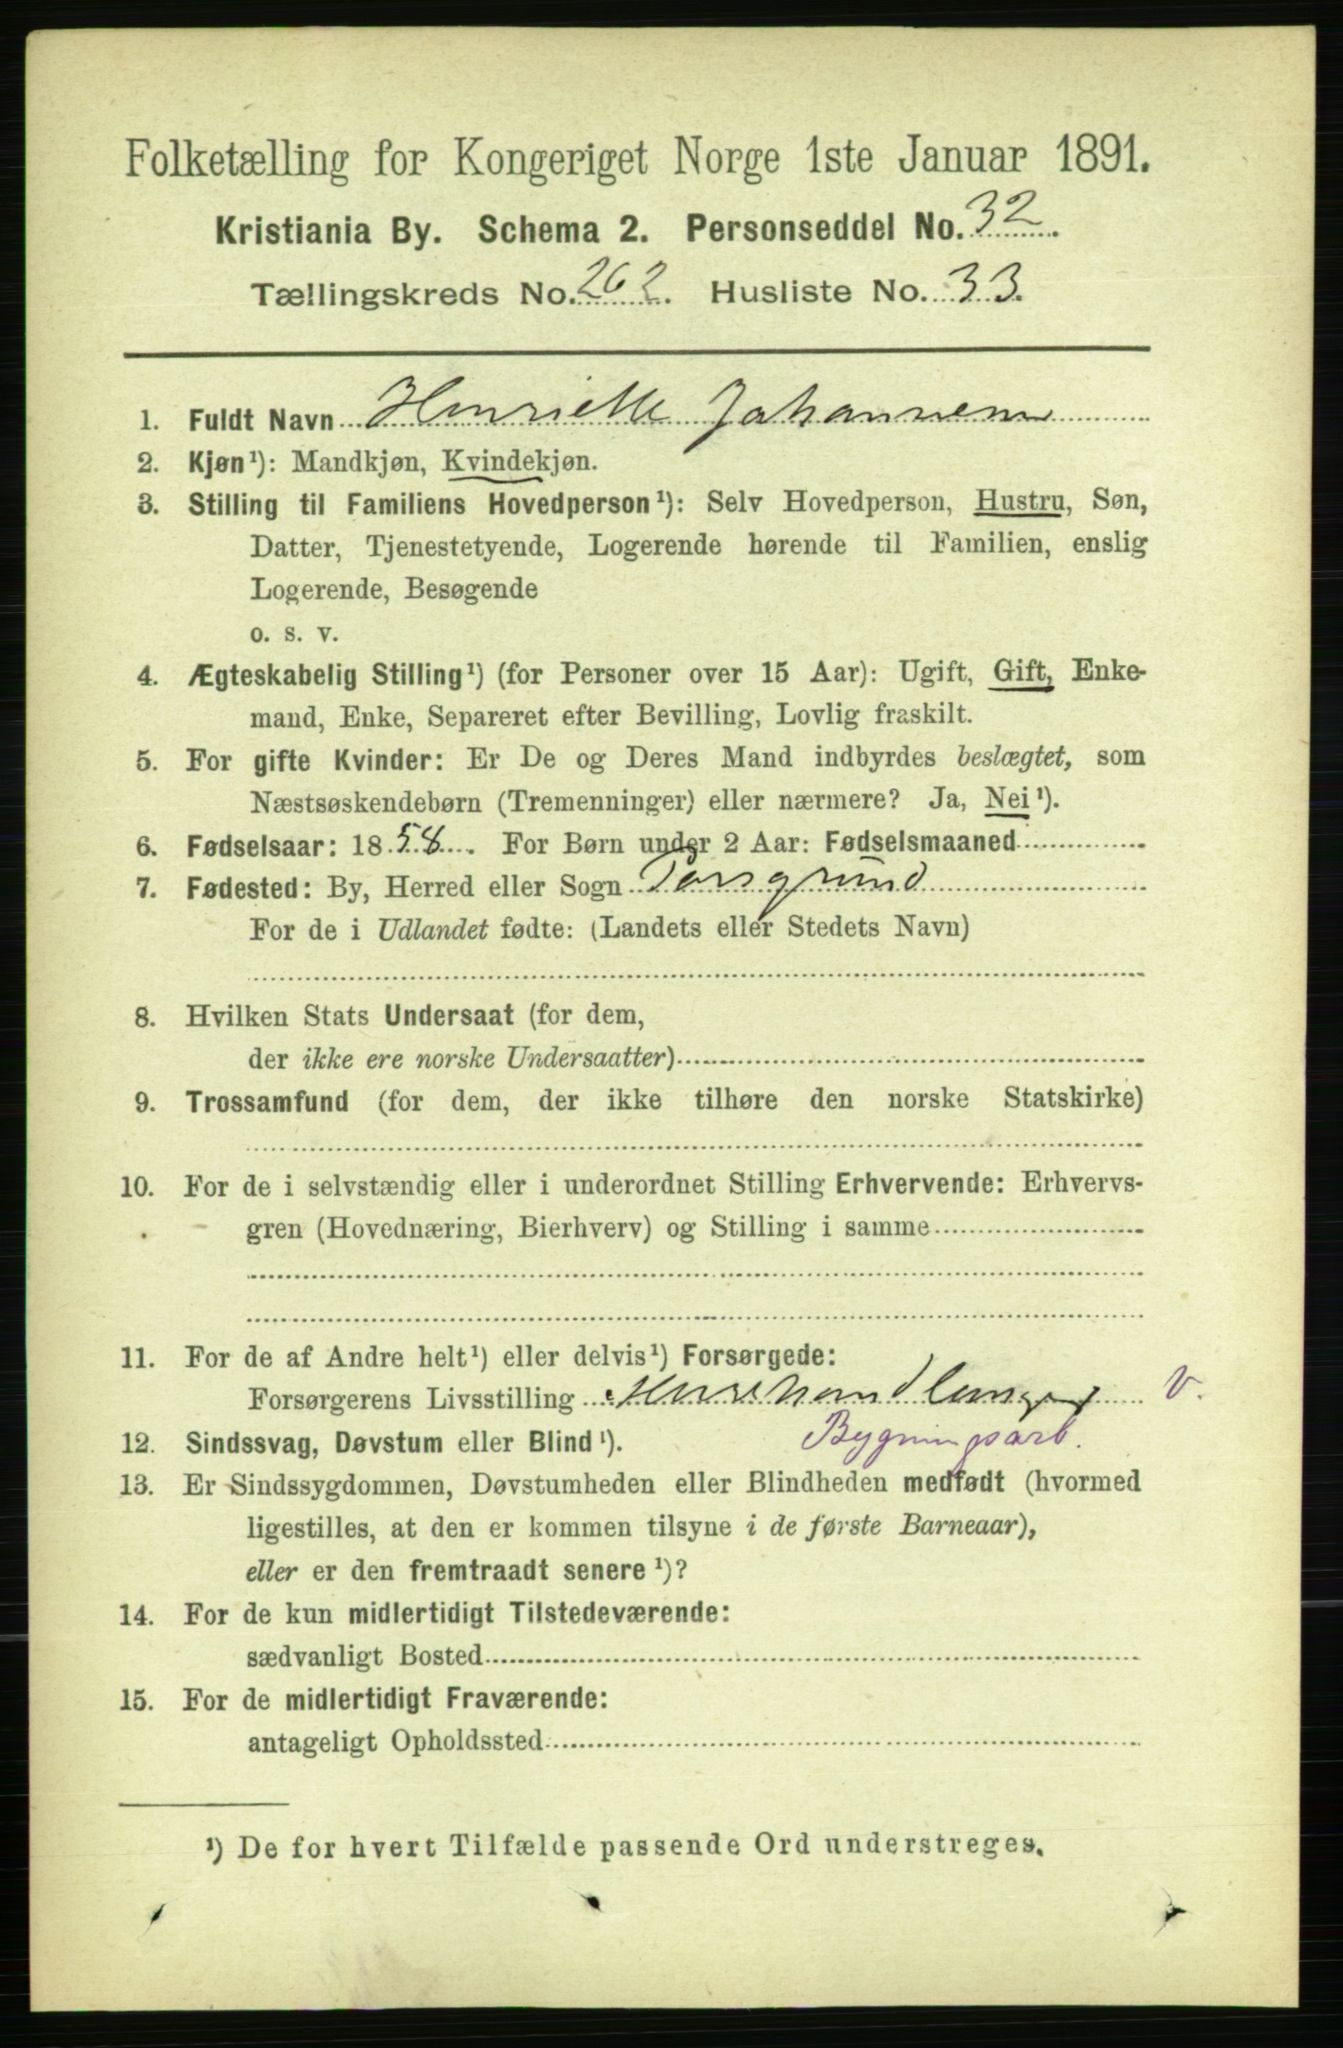 Folketælling for Kongeriget Norge 1ste Januar 1891.
Kristiania By. Schema 2. Personseddel No. 32.
Tællingskreds No. 262. Husliste No. 33.
1. Fuldt Navn Henriette Johannesen
2. Kjøn¹): Mandkjøn, Kvindekjøn.
3. Stilling til Familiens Hovedperson¹): Selv Hovedperson, Hustru, Søn,
Datter, Tjenestetyende, Logerende hørende til Familien, enslig
Logerende, Besøgende
o. s. v.
4. Ægteskabelig Stilling¹) (for Personer over 15 Aar): Ugift, Gift, Enke-
mand, Enke, Separeret efter Bevilling, Lovlig fraskilt.
5. For gifte Kvinder: Er De og Deres Mand indbyrdes beslægtet, som
Næstsøskendebørn (Tremenninger) eller nærmere? Ja, Nei¹).
6. Fødselsaar: 1858. For Børn under 2 Aar: Fødselsmaaned
7. Fødested: By, Herred eller Sogn Porsgrund
For de i Udlandet fødte: (Landets eller Stedets Navn)
8. Hvilken Stats Undersaat (for dem,
der ikke ere norske Undersaatter)
9. Trossamfund (for dem, der ikke tilhøre den norske Statskirke)
10. For de i selvstændig eller i underordnet Stilling Erhvervende: Erhvervs-
gren (Hovednæring, Bierhverv) og Stilling i samme
11. For de af Andre helt¹) eller delvis¹) Forsørgede:
Forsørgerens Livsstilling Murerhandlanger v.
Bygningsarb.
12. Sindssvag, Døvstum eller Blind¹).
13. Er Sindssygdommen, Døvstumheden eller Blindheden medfødt (hvormed
ligestilles, at den er kommen tilsyne i de første Barneaar),
eller er den fremtraadt senere¹)?
14. For de kun midlertidigt Tilstedeværende:
sædvanligt Bosted
15. For de midlertidigt Fraværende:
antageligt Opholdssted
¹) De for hvert Tilfælde passende Ord understreges.